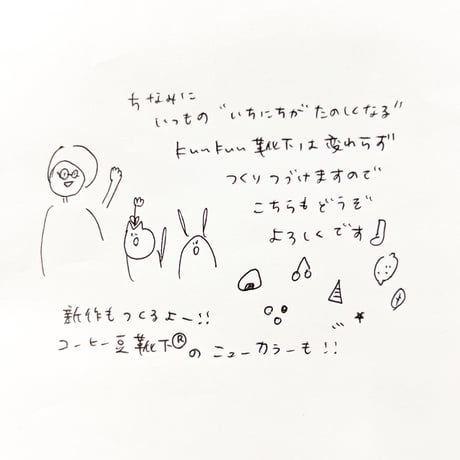 ちなみに
いつもの"いちにちがたのしくなる"
kunkun靴下は変わらず
つくりつづけますので
こちらもどうぞ
よろしくです♪
新作もつくるよー!!
コーヒー豆靴下®のニューカラーも!!